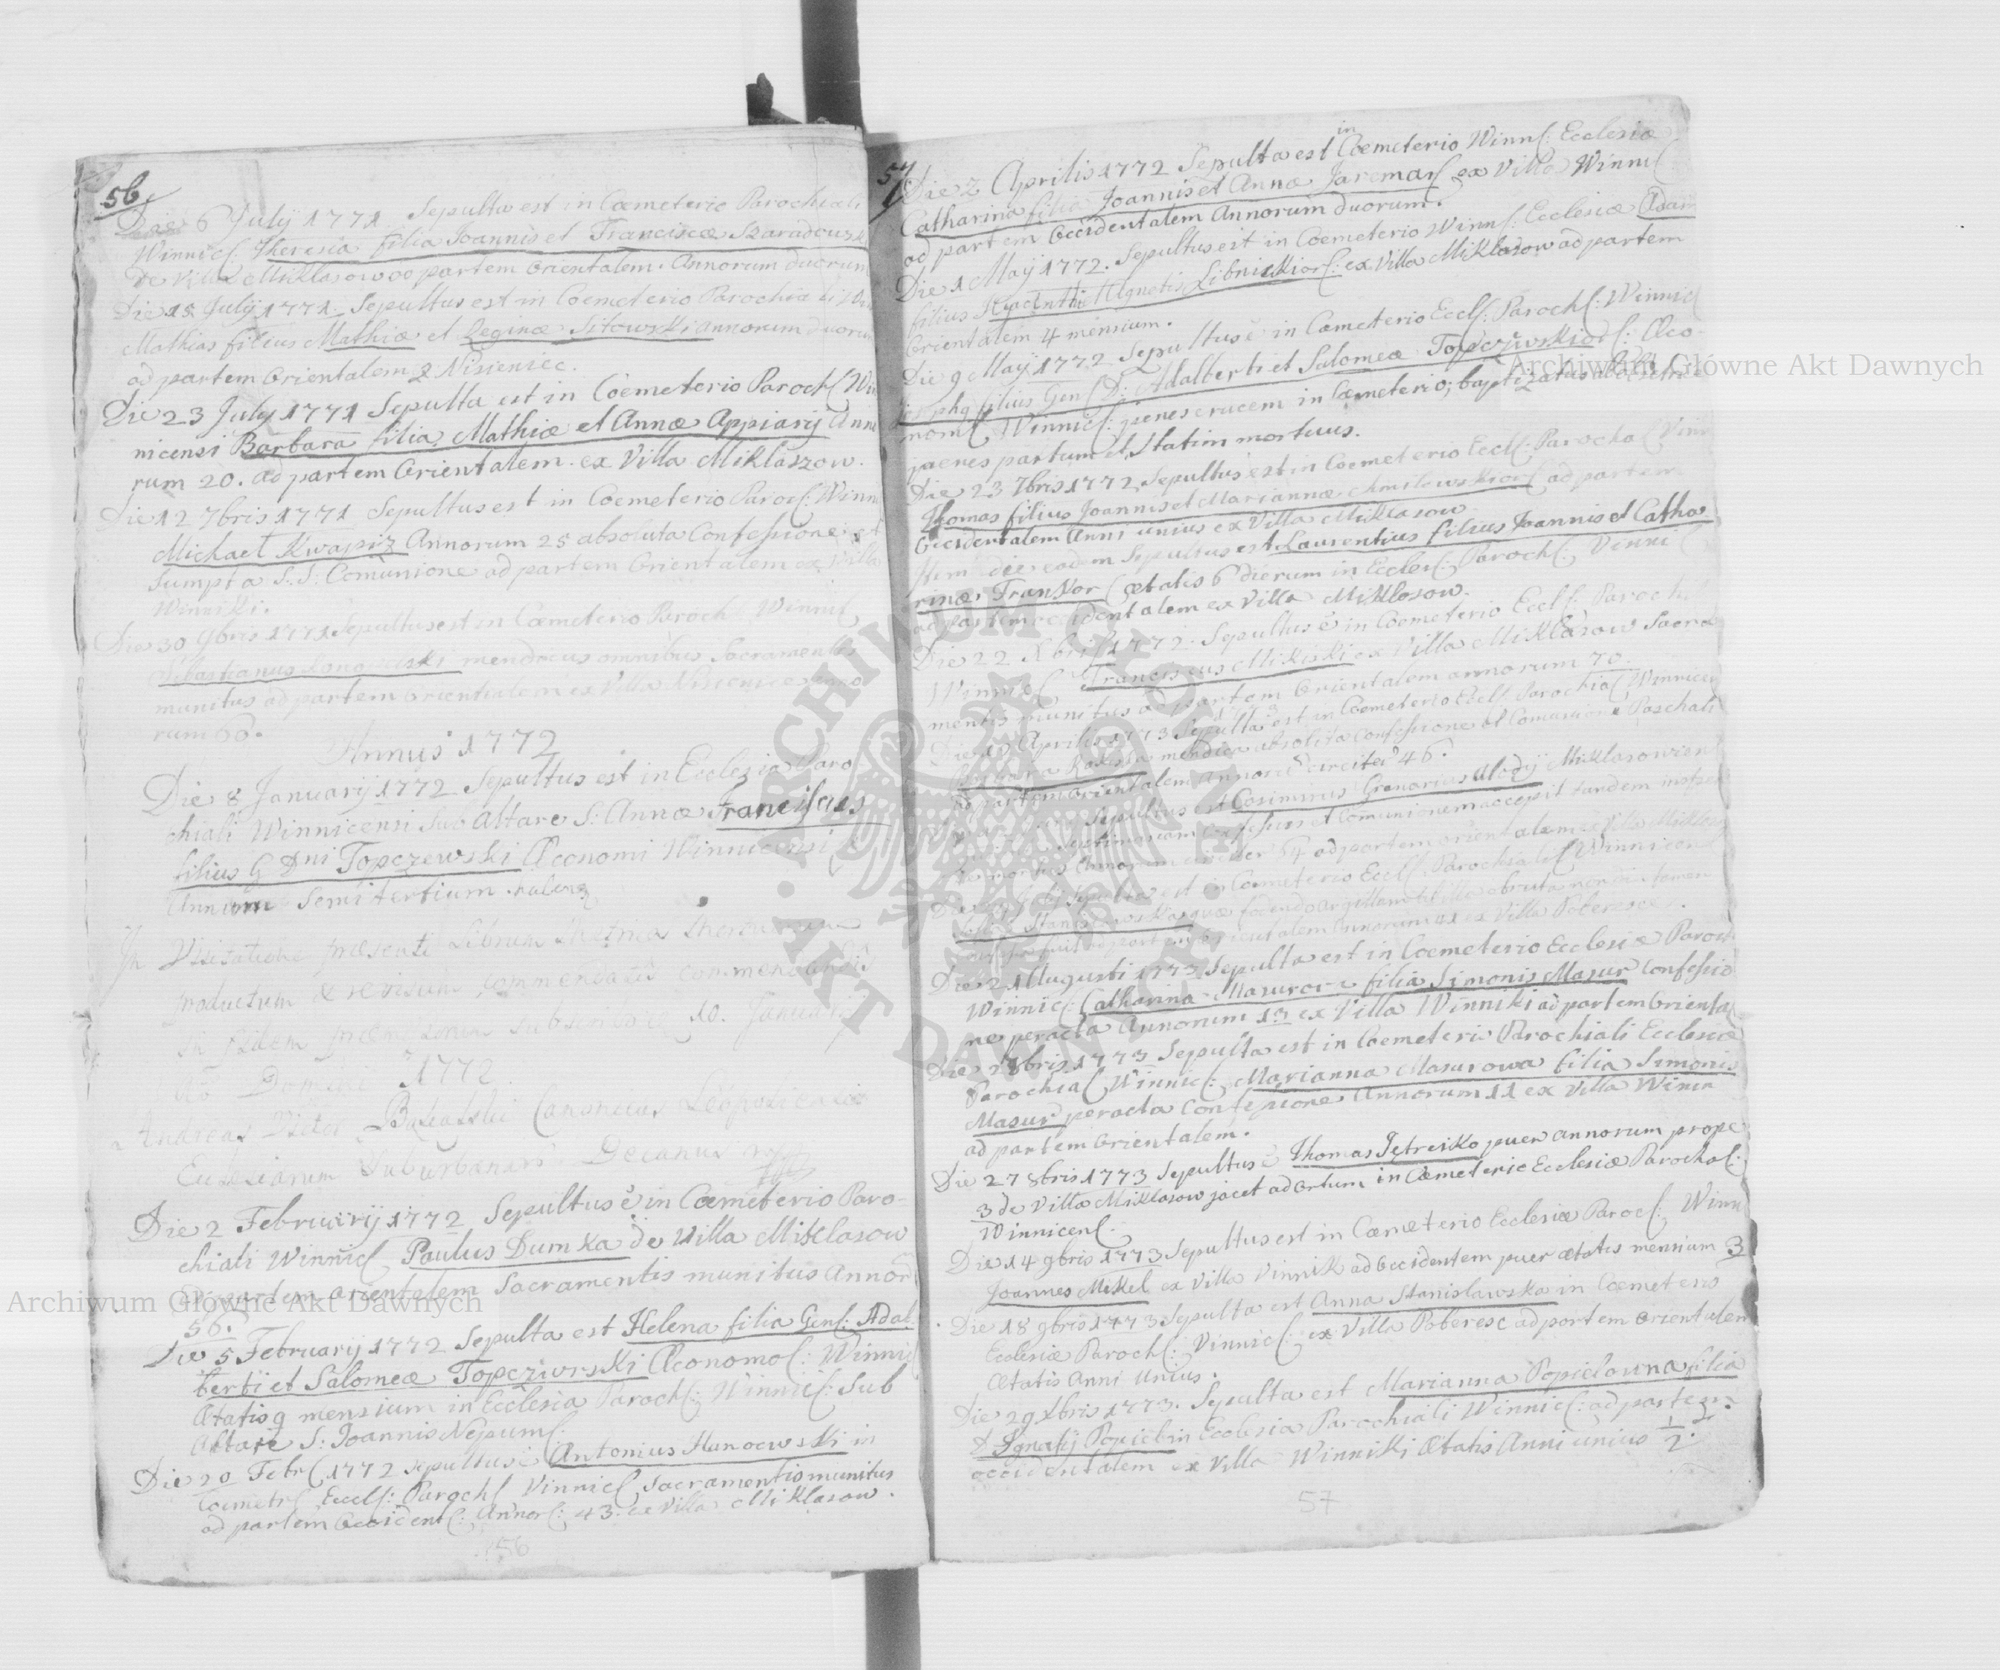 56
Die 6 July 1771 Sepulta est in Cœmeterio Parochiali
Winnicſ Theresia filia Joannis et Franciscæ Szaradowsk
de Villa Miklasow ad partem Orientalem. Annorum duorum
Die 18 July 1771. Sepultus est in Coemeterio Parochia
Mathias filius Mathiæ et Reginæ Sitowski annorum duorum
ad partem Orientalem
Die 23 July 1771 Sepulta est in Coemeterio Parochſ Win
nicensi Barbara filia Mathiæ et Annæ Appiary Anno
rum 20. ad partem Orientalem. ex Villa Miklaszow.
Die 12 7bris 1771 Sepultus est in Coemeterio Parocſ: Winn
Michael Kwapisz Annorum 25 absoluta Confessione et
Sumpta S: S: Comunione ad partem Orientalem ex Villa
Winniki.
Die 30 9bris 1771 Sepultus est in Cœmeterio Paroch Winnicſ
Sebastianus mendicus omnibus Sacramentis
munitus ad partem Orientalem ex Villa
rum 60.
Annus 1772
Die 8 January 1772 Sepultus est in Ecclesia Paro
chiali Winnicensi Sub Altare S: Annæ Franciscus
filius G Dni Topczewski Œconomi Winnicensi
Annum Semitertium habens
In Visitatione præsenti Librum Metricæ Mortuorum
productum & revisum commendatũ
in fidem subscribo 10. January
Aō Domini 1772
Andreas Victor Canonicus Leopoliensis
Ecclesiarum Suburbanarũ Decanus
Die 2 Februarij 1772 Sepultus ē in Cœmeterio Paro-
chiali Winnicſ Paulus Dumka de Villa Miklasow
ad partem orientalem Sacramentis munitus Annor
56.
Die 5 February 1772 Sepulta est Helena filia Genſ: Adal
berti et Salomeæ Topcziwski Œconomoſ: Winnicſ
Ætatis 9 mensium in Ecclesia Parochſ: Winnicſ: Sub
Altare S: Joannis Nepumſ:
Die 20 Febrſ 1772 Sepultus ē Antonius Hanoewski in
Coemetrſ Ecclſ: Parochſ Vinnicſ Sacramentis munitus
ad partem Occidentſ: Annorſ: 43. ex Villa Miklasow.
56
57
Die 2 Aprilis 1772 Sepulta est in Coemeterio Winnſ: Ecclesiæ
Catharina filia Joannis et Annæ Jaremarſ ex Villa Winnicſ
ad partem Occidentalem Annorum duorum.
Die 1 May 1772. Sepultus est in Coemeterio Winnſ: Ecclesiæ Adam
filius Hyacinthi et Agnetis Libnickiorſ: ex Villa Miklasow ad partem
Orientalem 4 mensium.
Die 9 May 1772 Sepultus ē in Cœmeterio Ecclſ: Parochſ: Winnicſ
Josephq filius Gen D: Adalberti et Salomeæ Topcziwskiorſ: Œco-
nomſ Winnicſ: penes crucem in Cœmeterio; baptizatus ab obstetrice
penes partum et Statim mortuus.
Die 23 7bris 1772 Sepultus est in Coemeterio Ecclſ: Parochaſ Vinn
Thomas filius Joannis et Mariannæ Amilowskiorſ ad partem
Occidentalem Anni unius ex Villa Miklasow
Item die eadem Sepultus est Laurentius filius Joannis et Catha
rinæ Trankor ætatis 6 dierum in Eccleſ: Parochſ: Vinni
ad partem occidentalem ex Villa Miklosow.
Die 22 Xbriſ 1772. Sepultus ē in Coemeterio Ecclſ: Paroch
Winnicſ Franciscus Mikiski ex Villa Miklasow Sacra
mentis munitus ad partem Orientalem annorum 70.
Die 19 Aprilis 1773 Sepulta est in Coemeterio Ecclſ Parochiaſ Winnicen
mendica absoluta Confessione et Comunione Paschali
ad partem Orientalem Annorũ circiter 46.
Sepultus est Casimirus Granarius Miklasowien
Confessus et Comunionem accepit tandem
Annorum circiter 54 ad partem orientalem ex Villa Miklasow
Sepulta est in Coemeterio Ecclſ Parochialſ Winnicen
quæ fodendo argillam ab illa obruta
ad partem orientalem Annorum ex Villa Poberesce.
Die 21 Augusti 1773 Sepulta est in Coemeterio Ecclesiæ Paroch
Winnicſ: Catharina Masurowa filia Simonis Masur Confessio
ne peracta Annorum 13 ex Villa Winniki ad partem Orienta
Die 2 8bris 1773 Sepulta est in Coemeterio Parochiali Ecclesiæ
Parochiaſ Winnicſ: Marianna Masurowa filia Simonis
Masur peracta Confessione Annorum 11 ex Villa Winn
ad partem Orientalem.
Die 27 8bris 1773 Sepultus ē Thomas Jętresko puer annorum prope
3 de Villa Miklasow jacet ad Ortum in Cœmeterio Ecclesiæ Parochaſ:
Winnicenſ.
Die 14 9bris 1773 Sepultus est in Cœmeterio Ecclesiæ Parocſ: Winn
Joannes Mekel ex Villa Vinnik ad Occidentem puer ætatis mensium 3
Die 18 9bris 1773 Sepulta est Anna Stanislawska in Cœmeterio
Ecclesiæ Parochſ: Vinnicſ: ex Villa Poberesc ad partem Orientalem
Ætatis Anni Unius.
Die 29 Xbris 1773. Sepulta est Marianna Popielowna filia
D Ignatij Popiel in Ecclesia Parochiali Winnicſ: ad partem
occidentalem ex Villa Winniki Ætatis Anni unius 1/2.
57
Archiwum Główne Akt Dawnych
Archiwum Główne Akt Dawnych
ARCHIWUM GŁÓWNE AKT DAWNYCH